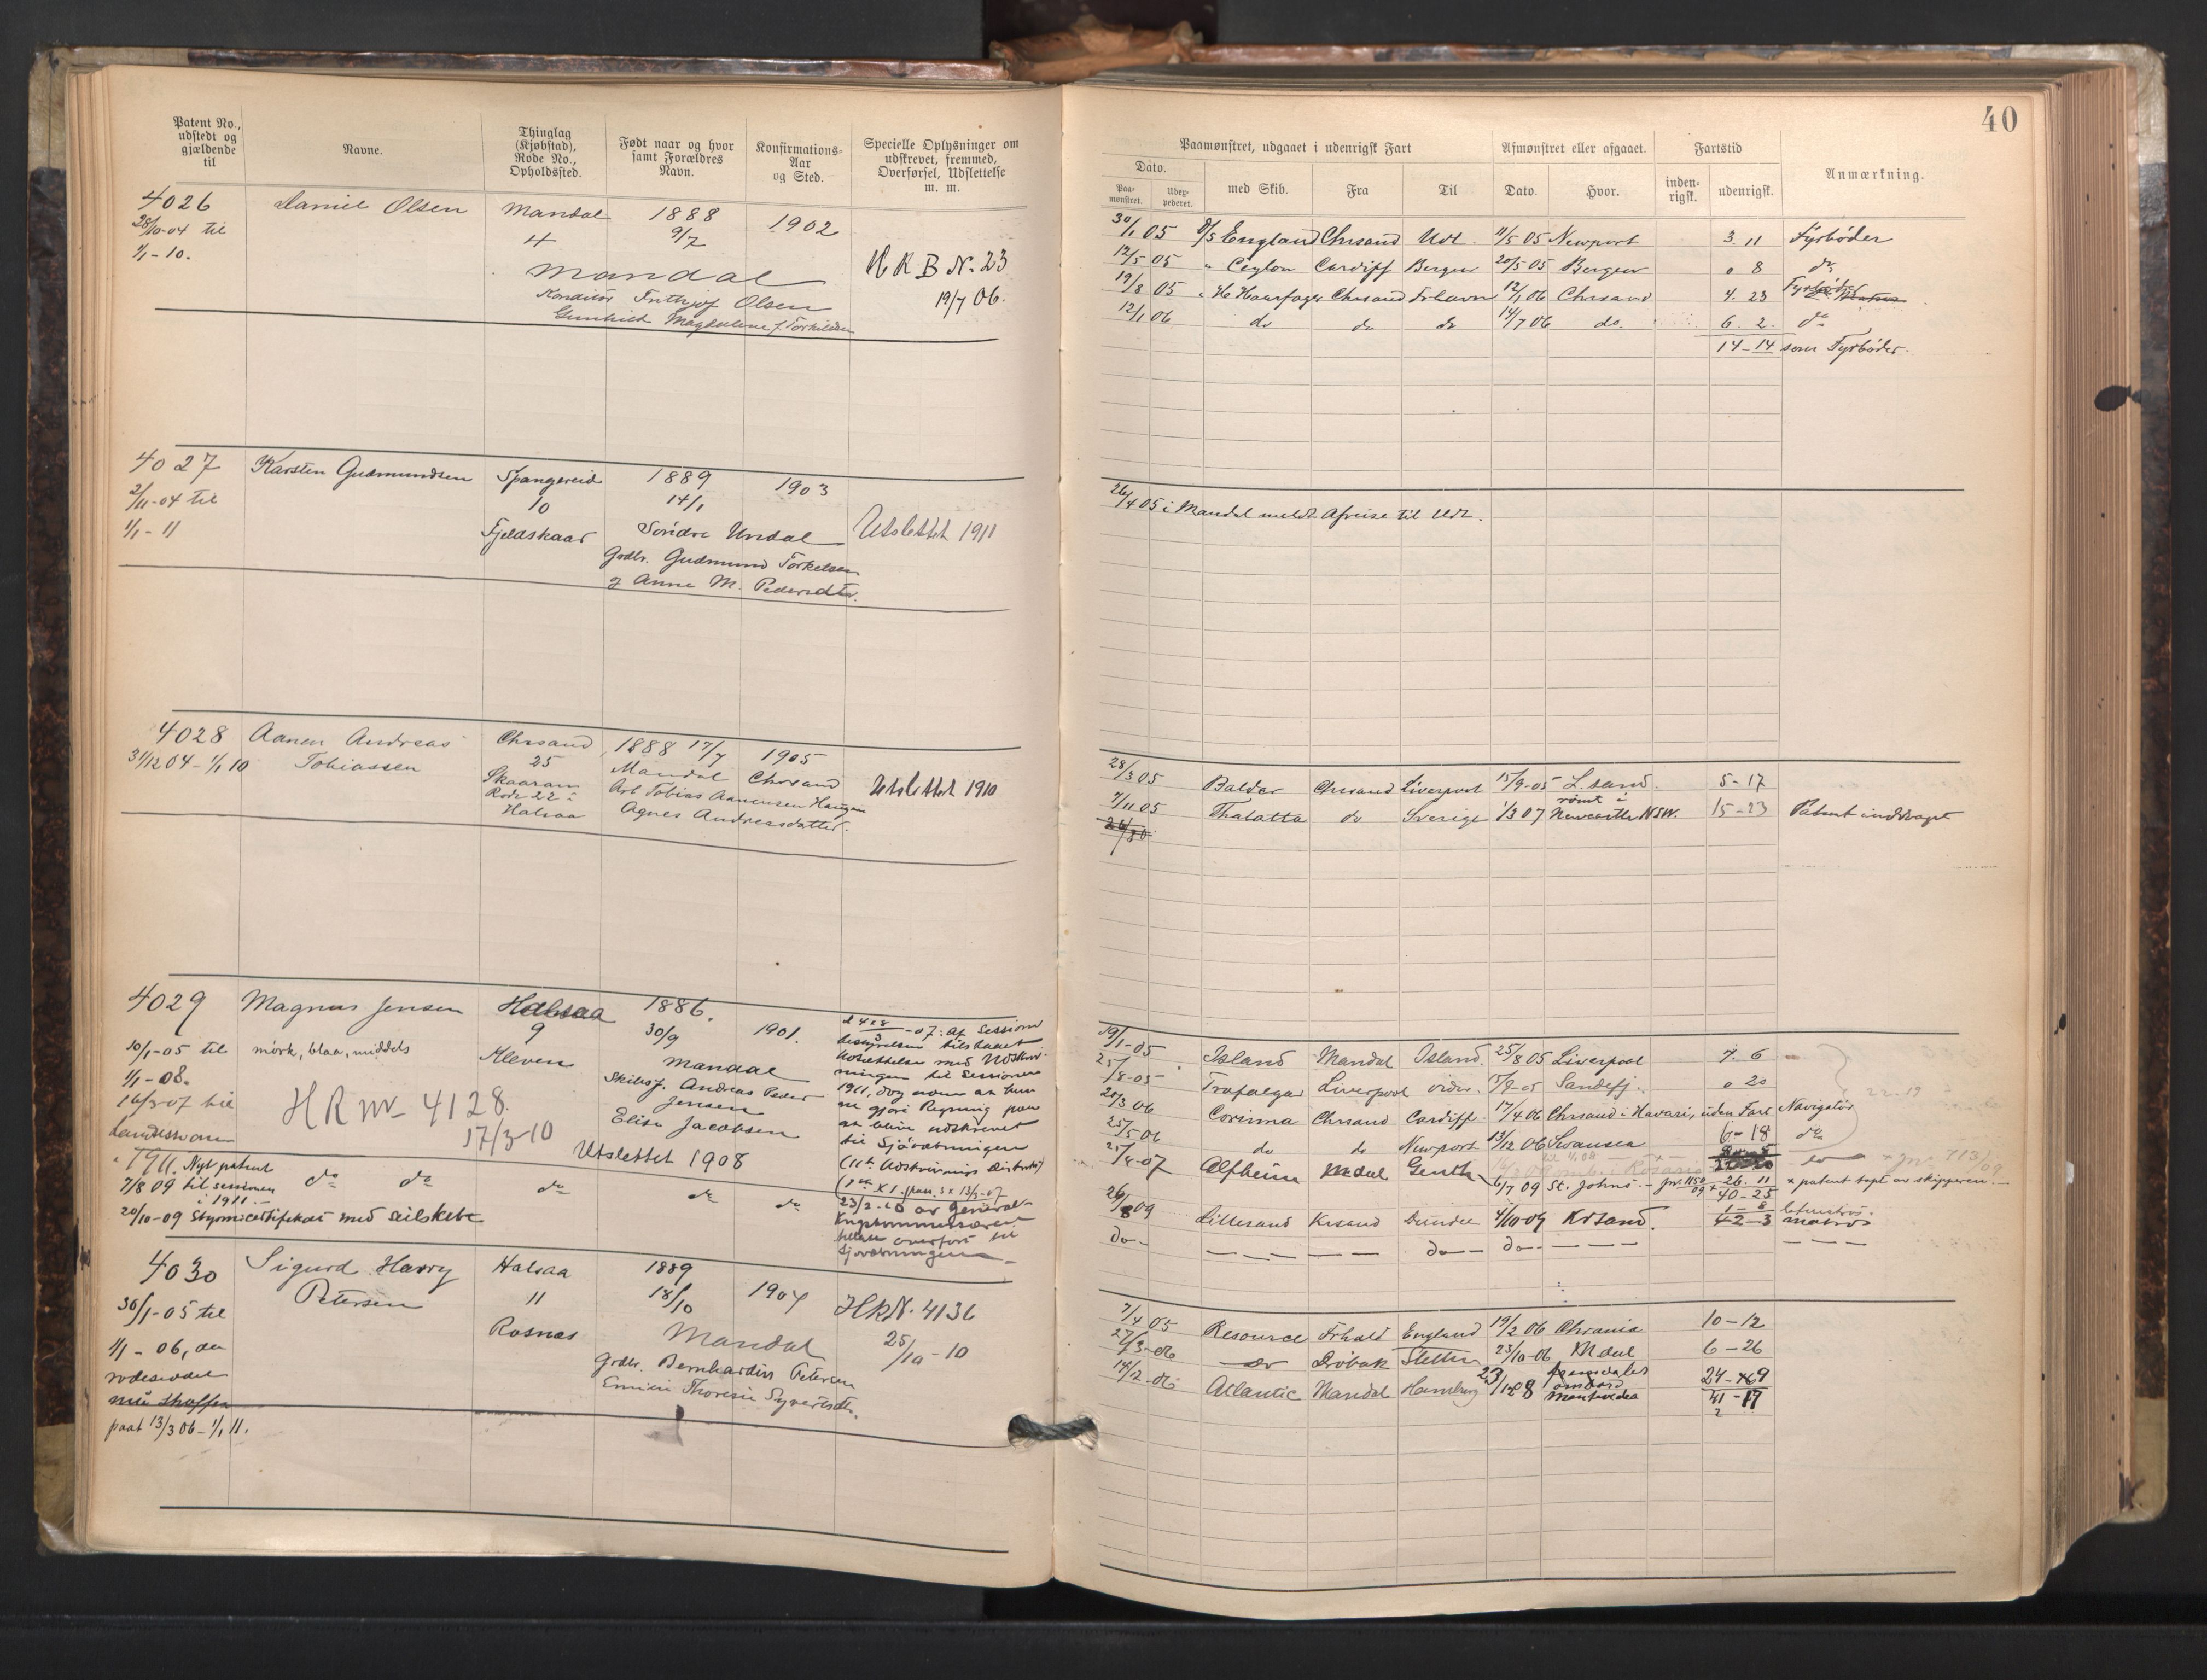 40
Patent No., udstedt og gjældende til
Navne.
Thinglag (Kjøbstad), Rode No., Opholdssted.
Født naar og hvor samt Forældres Navn.
Konfirmations-Aar og Sted.
Specielle Oplysninger om udskrevet, fremmed, Overførsel, Udslettelse m. m.
Paamønstret, udgaaet i udenrigsk Fart
Afmønstret eller afgaaet.
Fartstid
Anmærkning.
Dato.
Paa-mønstret.
Uder-pederet.
med Skib.
Fra
Til
Dato.
Hvor.
inden-rigsk.
udenrigsk.
4026 Daniel Olsen Mandal 1888 1902
28/10-04 til 4 9/7
1/1-10. Mandal H R B N. 23
Konditor Frithjof Olsen 19/7 06.
Gunhild Magdalene f. Torkildsen
30/1 05 D/S England Chrsand Udl. 11/5 05 Newport 3. 11 Fyrbøder
12/5 05 " Ceylon Cardiff Bergen 20/5 05 Bergen 0 8 do
19/8 05 " H Haarfager Chrsand Frhavn 12/1 06 Chrsand 4. 23 Fyrbøder
12/1 06 do do do 14/7 06 do. 6. 2. do
14-14 som Fyrbøder.
4027 Karsten Gudmundsen Spangereid 1889 1903
2/11-04 til 10 14/1
1/1-11 Fjeldskaar Søndre Undal Utslettet 1911
Grdbr. Gudmund Torkelsen
og Anne M. Pedersdtr.
26/4 05 i Mandal meldt Afreise til Udl.
4028 Aanen Andreas Chrsand 1888 17/7 1905
31/12 04 - 1/1 10 Tobiassen 25 Mandal Chrsand
Skaaram Arb Tobias Aanensen Haugen Utslettet 1910
Rode 22 i Agnes Andreasdatter.
Halsaa
28/3 05 Balder Chrsand Liverpool 15/9-05 L.sand. 5-17
7/11 05 Thalatta do Sverige 1/3 07 rømt i Newcastle NSW. 15-23 Patent inddraget
4029 Magnus Jensen Halsaa 1886.
10/1-05 til mörk, blaa, middels 9 30/9 1901.
1/1-08. Kleven Mandal
16/3-07 til HR nr 4128. Skibsf. Andreas Peder Jensen
Landstormen 17/3-10 Elise Jacobsen
Utslettet 1908
1911. Nyt patent do do do do do
7/8 09 til sessionen
i 1911.-
20/10-09 Styrmicertifikat med seilskibe
-07: af Sessions
bestyrelsen tilstaaet
Udsættelse med Udskriv-
ningen til Sessionen
1911, dog uden at kun
ne gjøre Regning paa
at blive udskrevet
til Sjøvæbningen
(11te Udskrivnings Distrikt)
23/2-10 av General-
Krigskommissæren
tillatt overført til
Sjøvæbningen
19/1-05 Island Mandal Island 25/8 05 Liverpool 7. 6
25/8-05 Trafalgar Liverpool ordre 15/9-05 Sandefj. 0 20
20/3 06 Corinna Chrsand Cardiff 17/4 06 Chrsand i Havari, uden Fart Navigatør
25/5 06 do do Newport 13/12 06 Swansea 6-18 do
25/4-07 Alfheim Mdal Genth
6/7 09 St. Johns. 26. 11 x patent tapt av skipperen.
40-25
26/8 09 Lillesand Krsand Dundee 4/10-09 Krsand. 1-8 letmatros
42-3 matros
do- do do
4030 Sigurd Harry Halsaa 1889
30/1-05 til Petersen 11 18/10 1904 HRN. 4136
1/1-06, da Rosnæs Mandal 25/10-10
rodeseddel Grdbr. Bernhardin Petersen
må skaffes Emilie Thoresie Syvertsdtr.
paat 13/3 06-1/1 11.
7/4 05 Resource Frhald England 19/2 06 Chrania 10-12
27/3-06 do Drøbak Stettin 23/10-06 Mdal 6-26
14/12-06 Atlantic Mandal Hamburg 23/1 08 ombord Montevideo 24-9
41-17